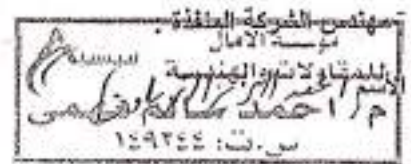 مهندس الشركة المنفذة
مؤسسة الامال
للمقاولات والهندسية
الاسم
م / احمد سالم فهمى
س.ت: ١٤٩٢٤٤